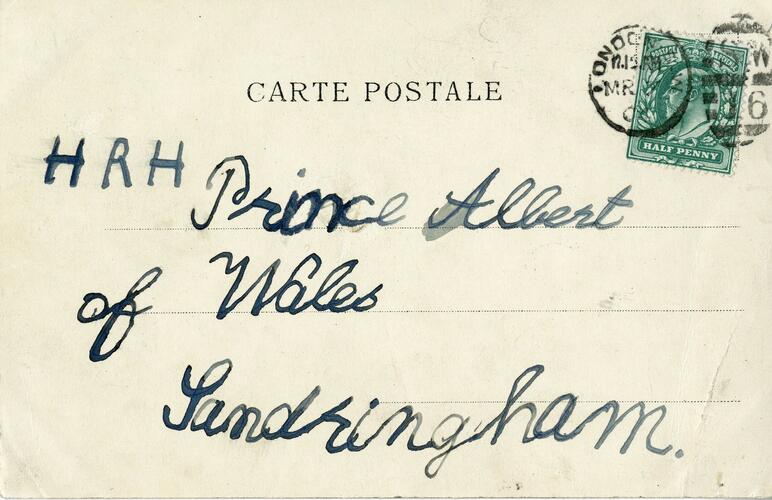 CARTE POSTALE
LONDO
MR
HALF PENNY
HRH Prince Albert
of Wales
Sandringham.